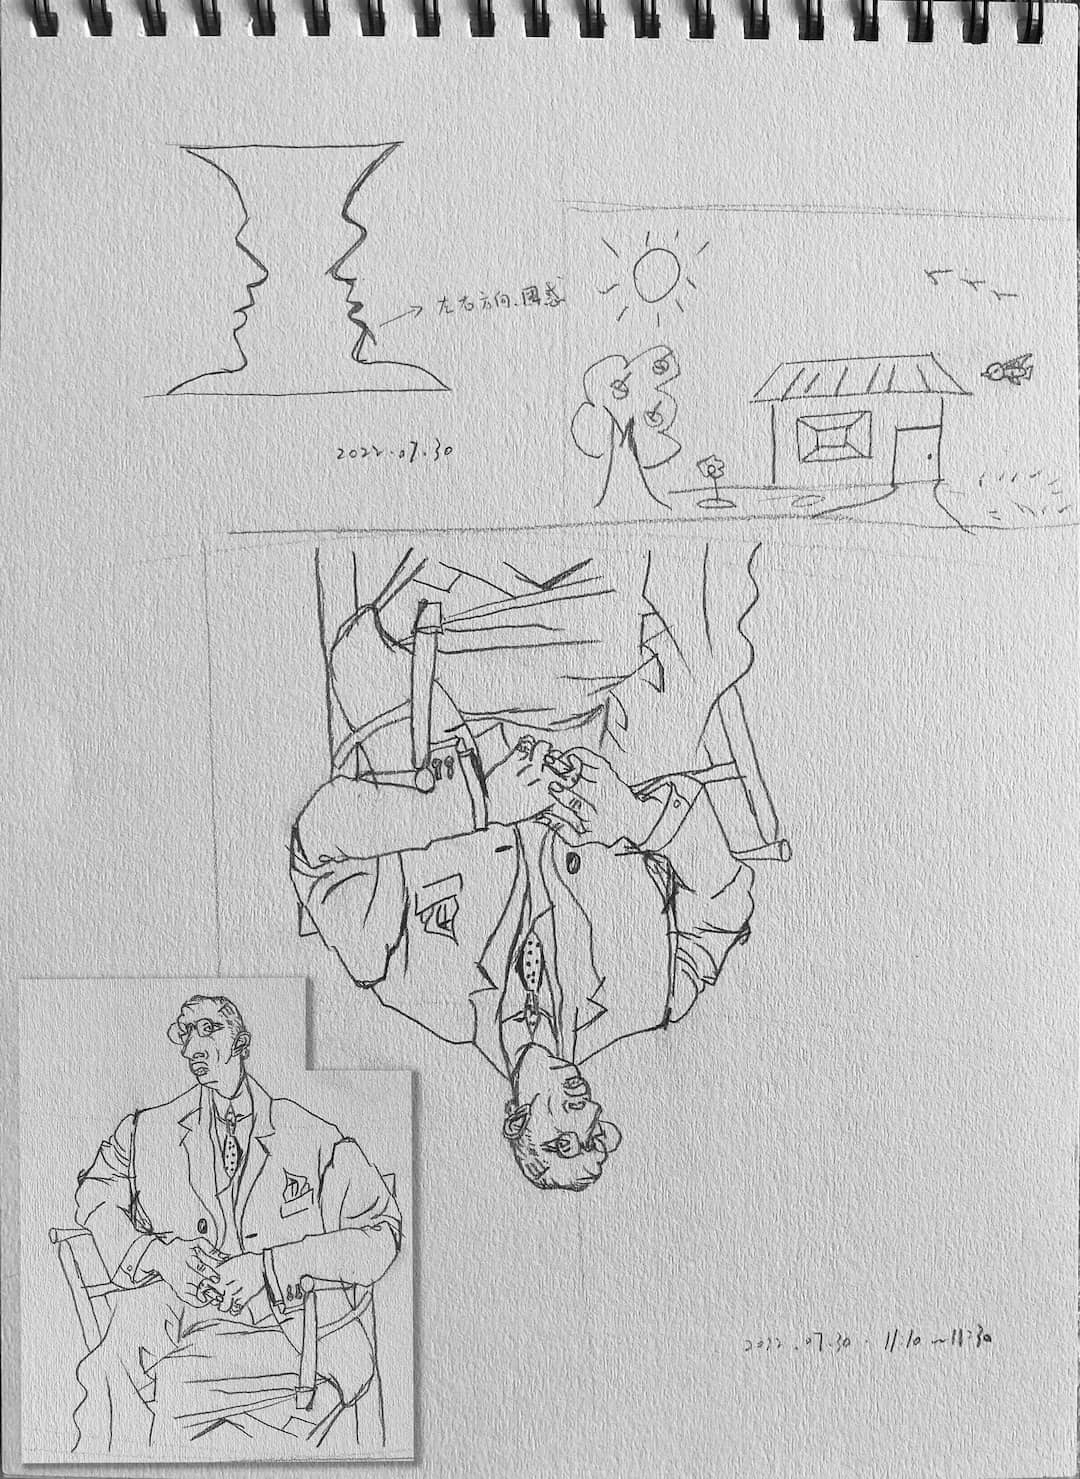 左右方向、困惑
2022.07.30
2022.07.30 · 11:10~11:30